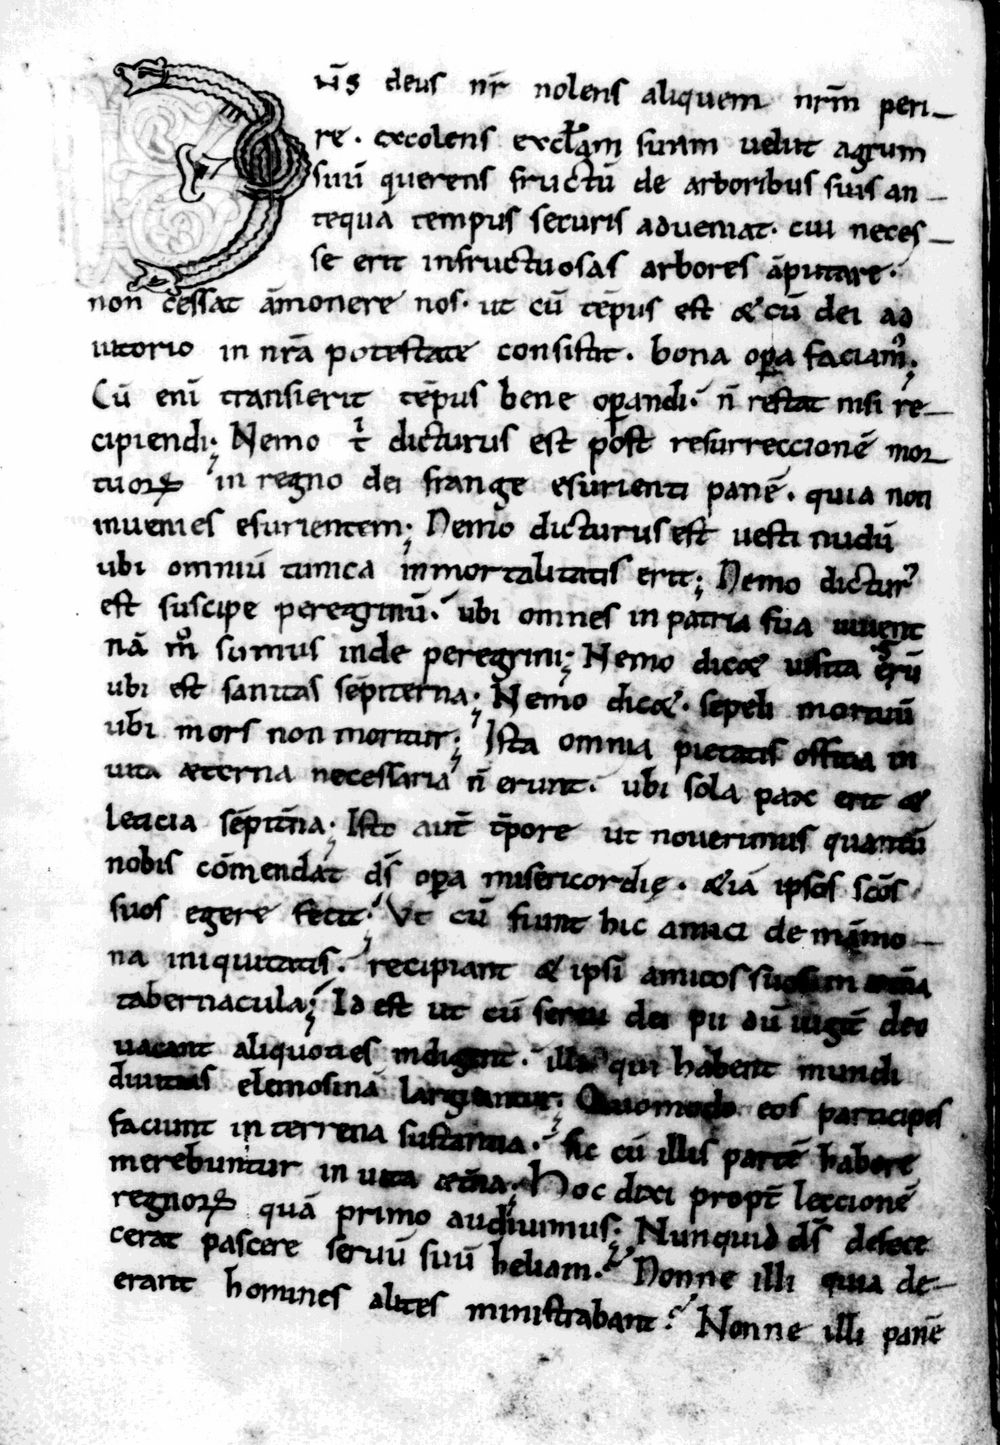 Dn̄s deus nr̄ nolens aliquem nrm̄ peri-
re. excolens excłam suam uelut agrum
suū querens fructū de arboribus suis an-
tequā tempus securis adueniat. cui neces-
se erit infructuosas arbores āputare.
non cessat āmonere nos. ut cū tēp̄us est & cū dei ad
iutorio in nrā potestate consistit. bona opa faciam᷒;
Cū enī transierit tēpus bene opandi. n̄ restat nisi re-
cipiendi; Nemo t̄ dicturus est post resurreccionē mor
tuoꝝ in regno dei frange esurienti panē. quia non
inuenies esurientem; Nemo dicturus est uesti nudū
ubi omniū tunica inmortalitatis erit; Nemo dictur᷒
est suscipe peregrinū. ubi omnes in patria sua uiuent
nā m̊ sumus inde peregrini; Nemo dic& uisita egrū
ubi est sanitas sēpiterna; Nemo dic&. sepeli mortuū
ubi mors non moritur; Ista omnia pietatis officia in
uita æterna necessaria n̄ erunt. ubi sola pax erit &
leticia sēpit̄na; Isto aut̄ tp̄ore ut nouerimus quantū
nobis cōmendat ds̄ opa misericordię. &iā ipsos scōs
suos egere fecit. Vt cū fiunt hic amici de māmo-
na iniquitatis. recipiant & ipsi amicos suos in
tabernacula; Id est ut cū serui dei pii dū iugit̄ deo
uacant aliquoties indigent. illi qui habent mundi
diuitias elemosinā largiantur; Quomodo eos participes
faciunt in terrena sustantia. sic cū illis partē habere
merebuntur in uita æt̄na; Hoc dixi propt̄ leccionē
regnoꝝ quā primo audiuimus; Nunquid ds̄ defece
cerat pascere seruū suū heliam. Nonne illi quia de-
erant homines alites ministrabant. Nonne illi panē